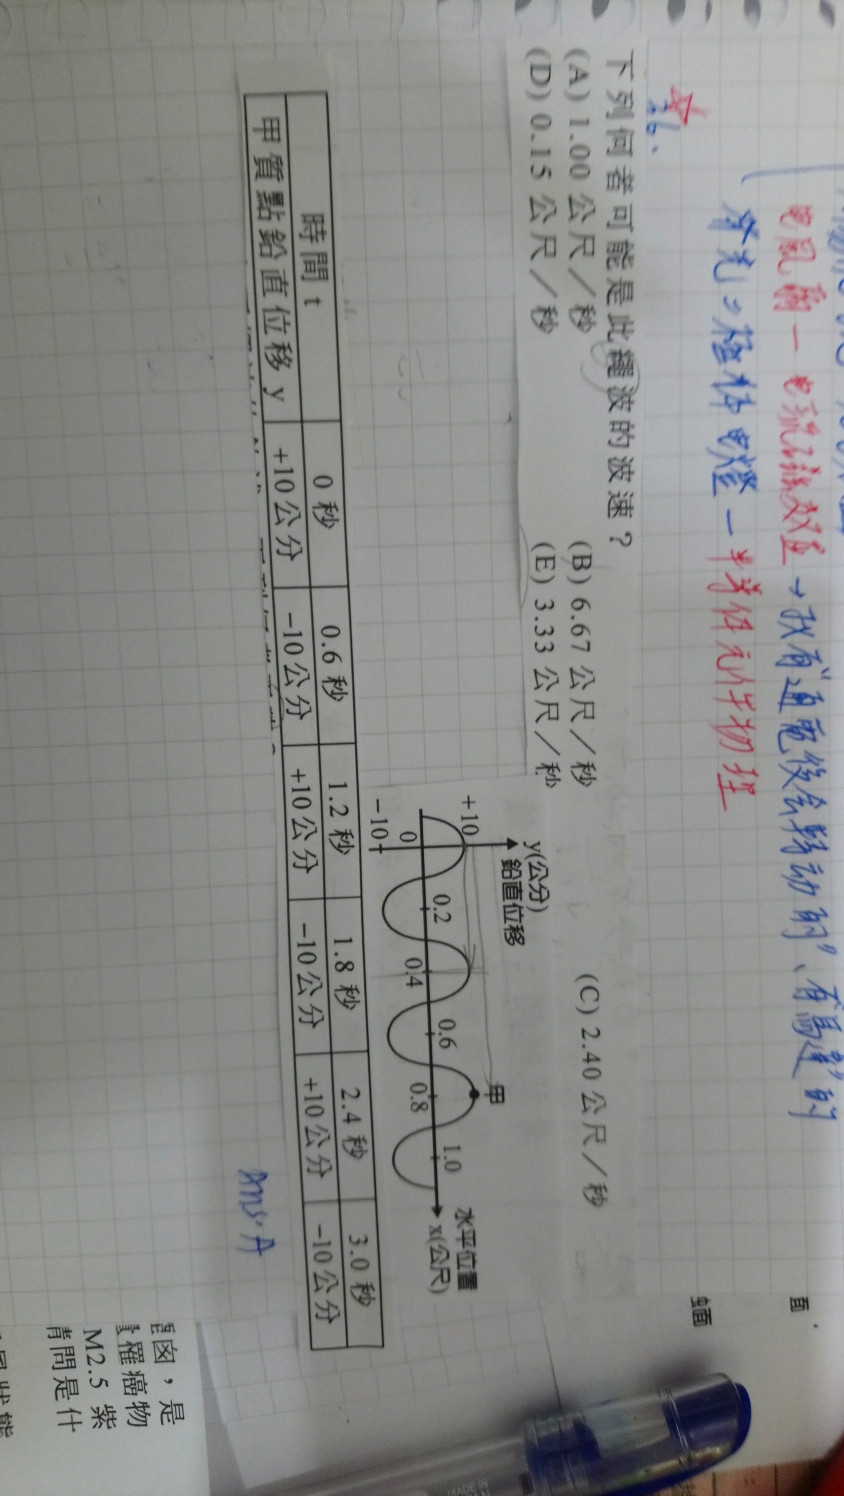 电風扇－电流磁效應→我有通電後会轉动的"、有馬達"的
發光二極体电燈－半導体元件物理
☆
26.
下列何者可能是此繩波的波速？
(A) 1.00 公尺／秒 (B) 6.67 公尺／秒 (C) 2.40 公尺／秒
(D) 0.15 公尺／秒 (E) 3.33 公尺／秒
y(公分)
鉛直位移
+10
0
-10
0.2
0.4
0.6
0.8
1.0
甲
水平位置
x(公尺)
時間 t 0 秒 0.6 秒 1.2 秒 1.8 秒 2.4 秒 3.0 秒
甲質點鉛直位移 y +10 公分 -10 公分 +10 公分 -10 公分 +10 公分 -10 公分
Ans: A
面，
，是
罹癌物
M2.5 紫
問是什